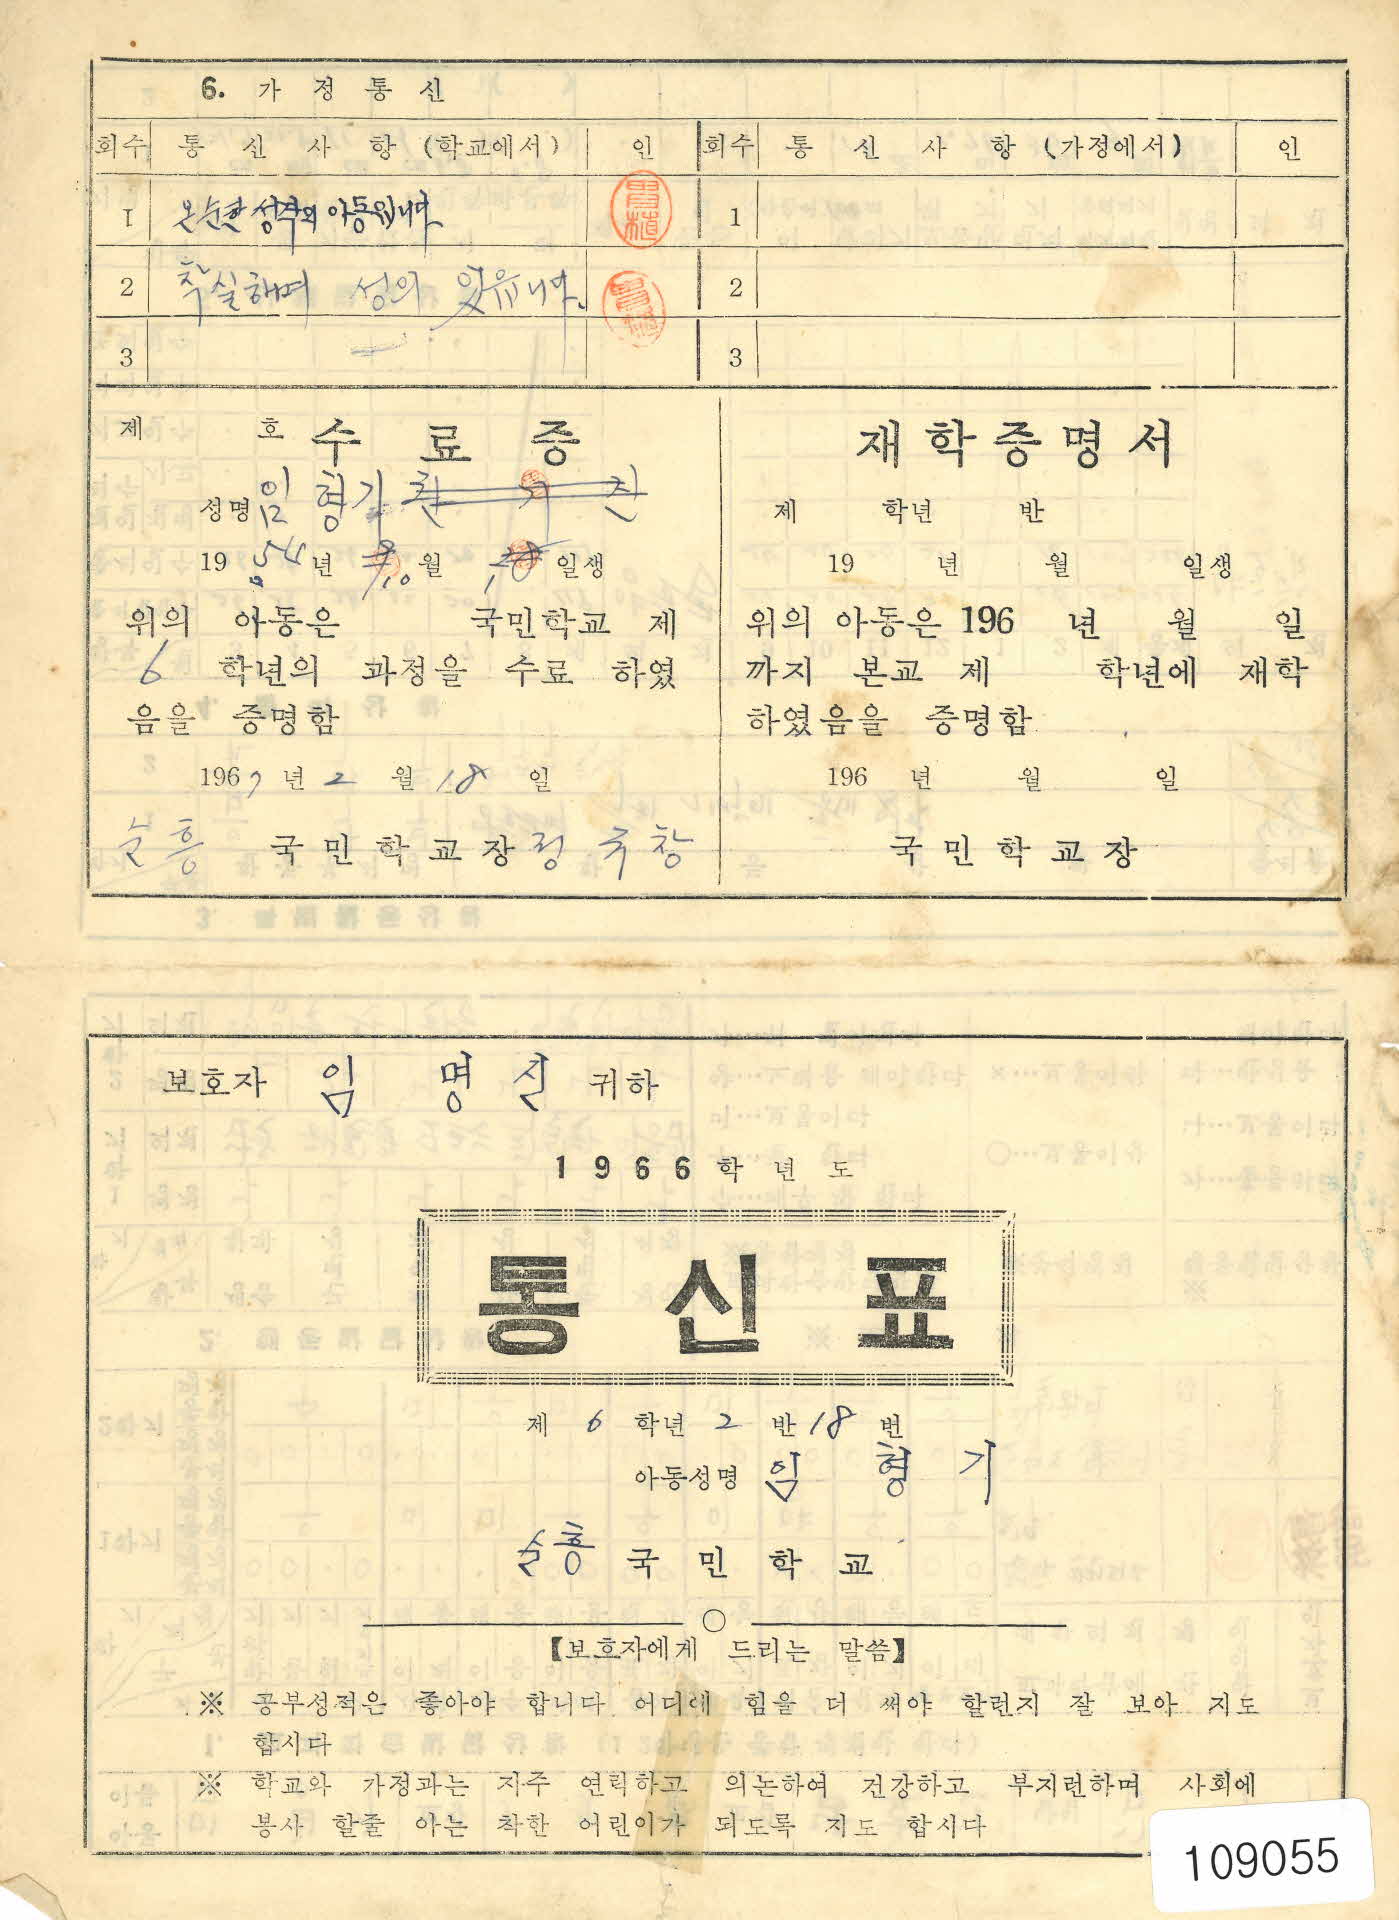 6. 가정통신
회수 통신사항 (학교에서) 인 회수 통신사항 (가정에서) 인
1 온순한 성격의 아동입니다. 1
2 착실하며 성의 있읍니다. 2
3 3
제 호 수료증
성명 임형기
1954년 10월 일생
위의 아동은 국민학교 제
6 학년의 과정을 수료 하였
음을 증명함
1967년 2월 18일
순흥 국민학교장 정국창
재학증명서
제 학년 반
19 년 월 일생
위의 아동은 196 년 월 일
까지 본교 제 학년에 재학
하였음을 증명함
196 년 월 일
국민학교장
보호자 임명실 귀하
1966학년도
통신표
제 6 학년 2 반 18 번
아동성명 임형기
순흥 국민학교
【보호자에게 드리는 말씀】
※ 공부성적은 좋아야 합니다 어디에 힘을 더 써야 할런지 잘 보아 지도
합시다
※ 학교와 가정과는 자주 연락하고 의논하여 건강하고 부지런하며 사회에
봉사 할줄 아는 착한 어린이가 되도록 지도 합시다
109055